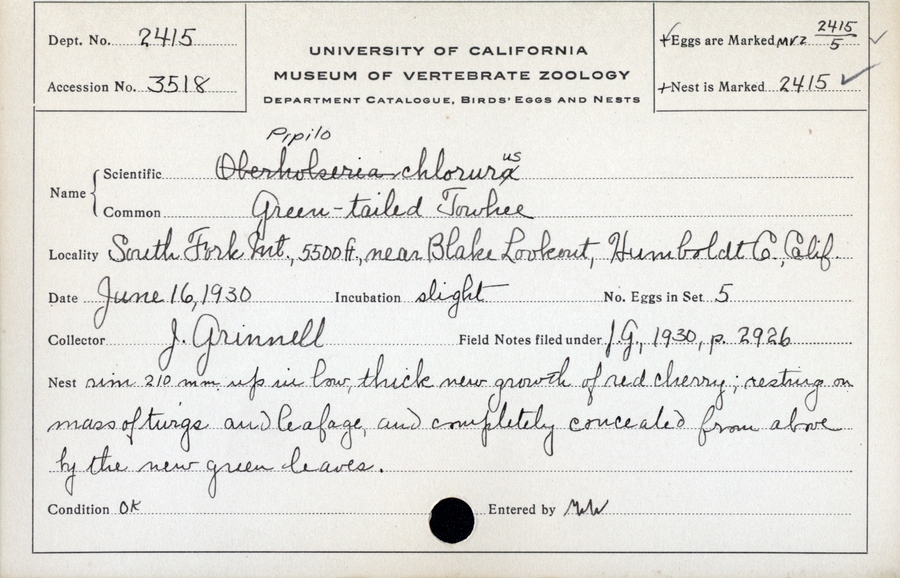 Dept. No. 2415
Accession No. 3518
UNIVERSITY OF CALIFORNIA
MUSEUM OF VERTEBRATE ZOOLOGY
DEPARTMENT CATALOGUE, BIRDS' EGGS AND NESTS
+Eggs are Marked MVZ 2415/5
+Nest is Marked 2415
Pipilo
us
Name Scientific Oberholseria chlorura
Common Green-tailed Towhee
Locality South Fork Mt., 5500 ft., near Blake Lookout, Humboldt Co., Calif.
Date June 16, 1930 Incubation slight No. Eggs in Set 5
Collector J. Grinnell Field Notes filed under J.G., 1930, p. 2926
Nest rim 210 mm. up in low, thick new growth of red cherry; resting on
mass of twigs and leafage, and completely concealed from above
by the new green leaves.
Condition OK Entered by